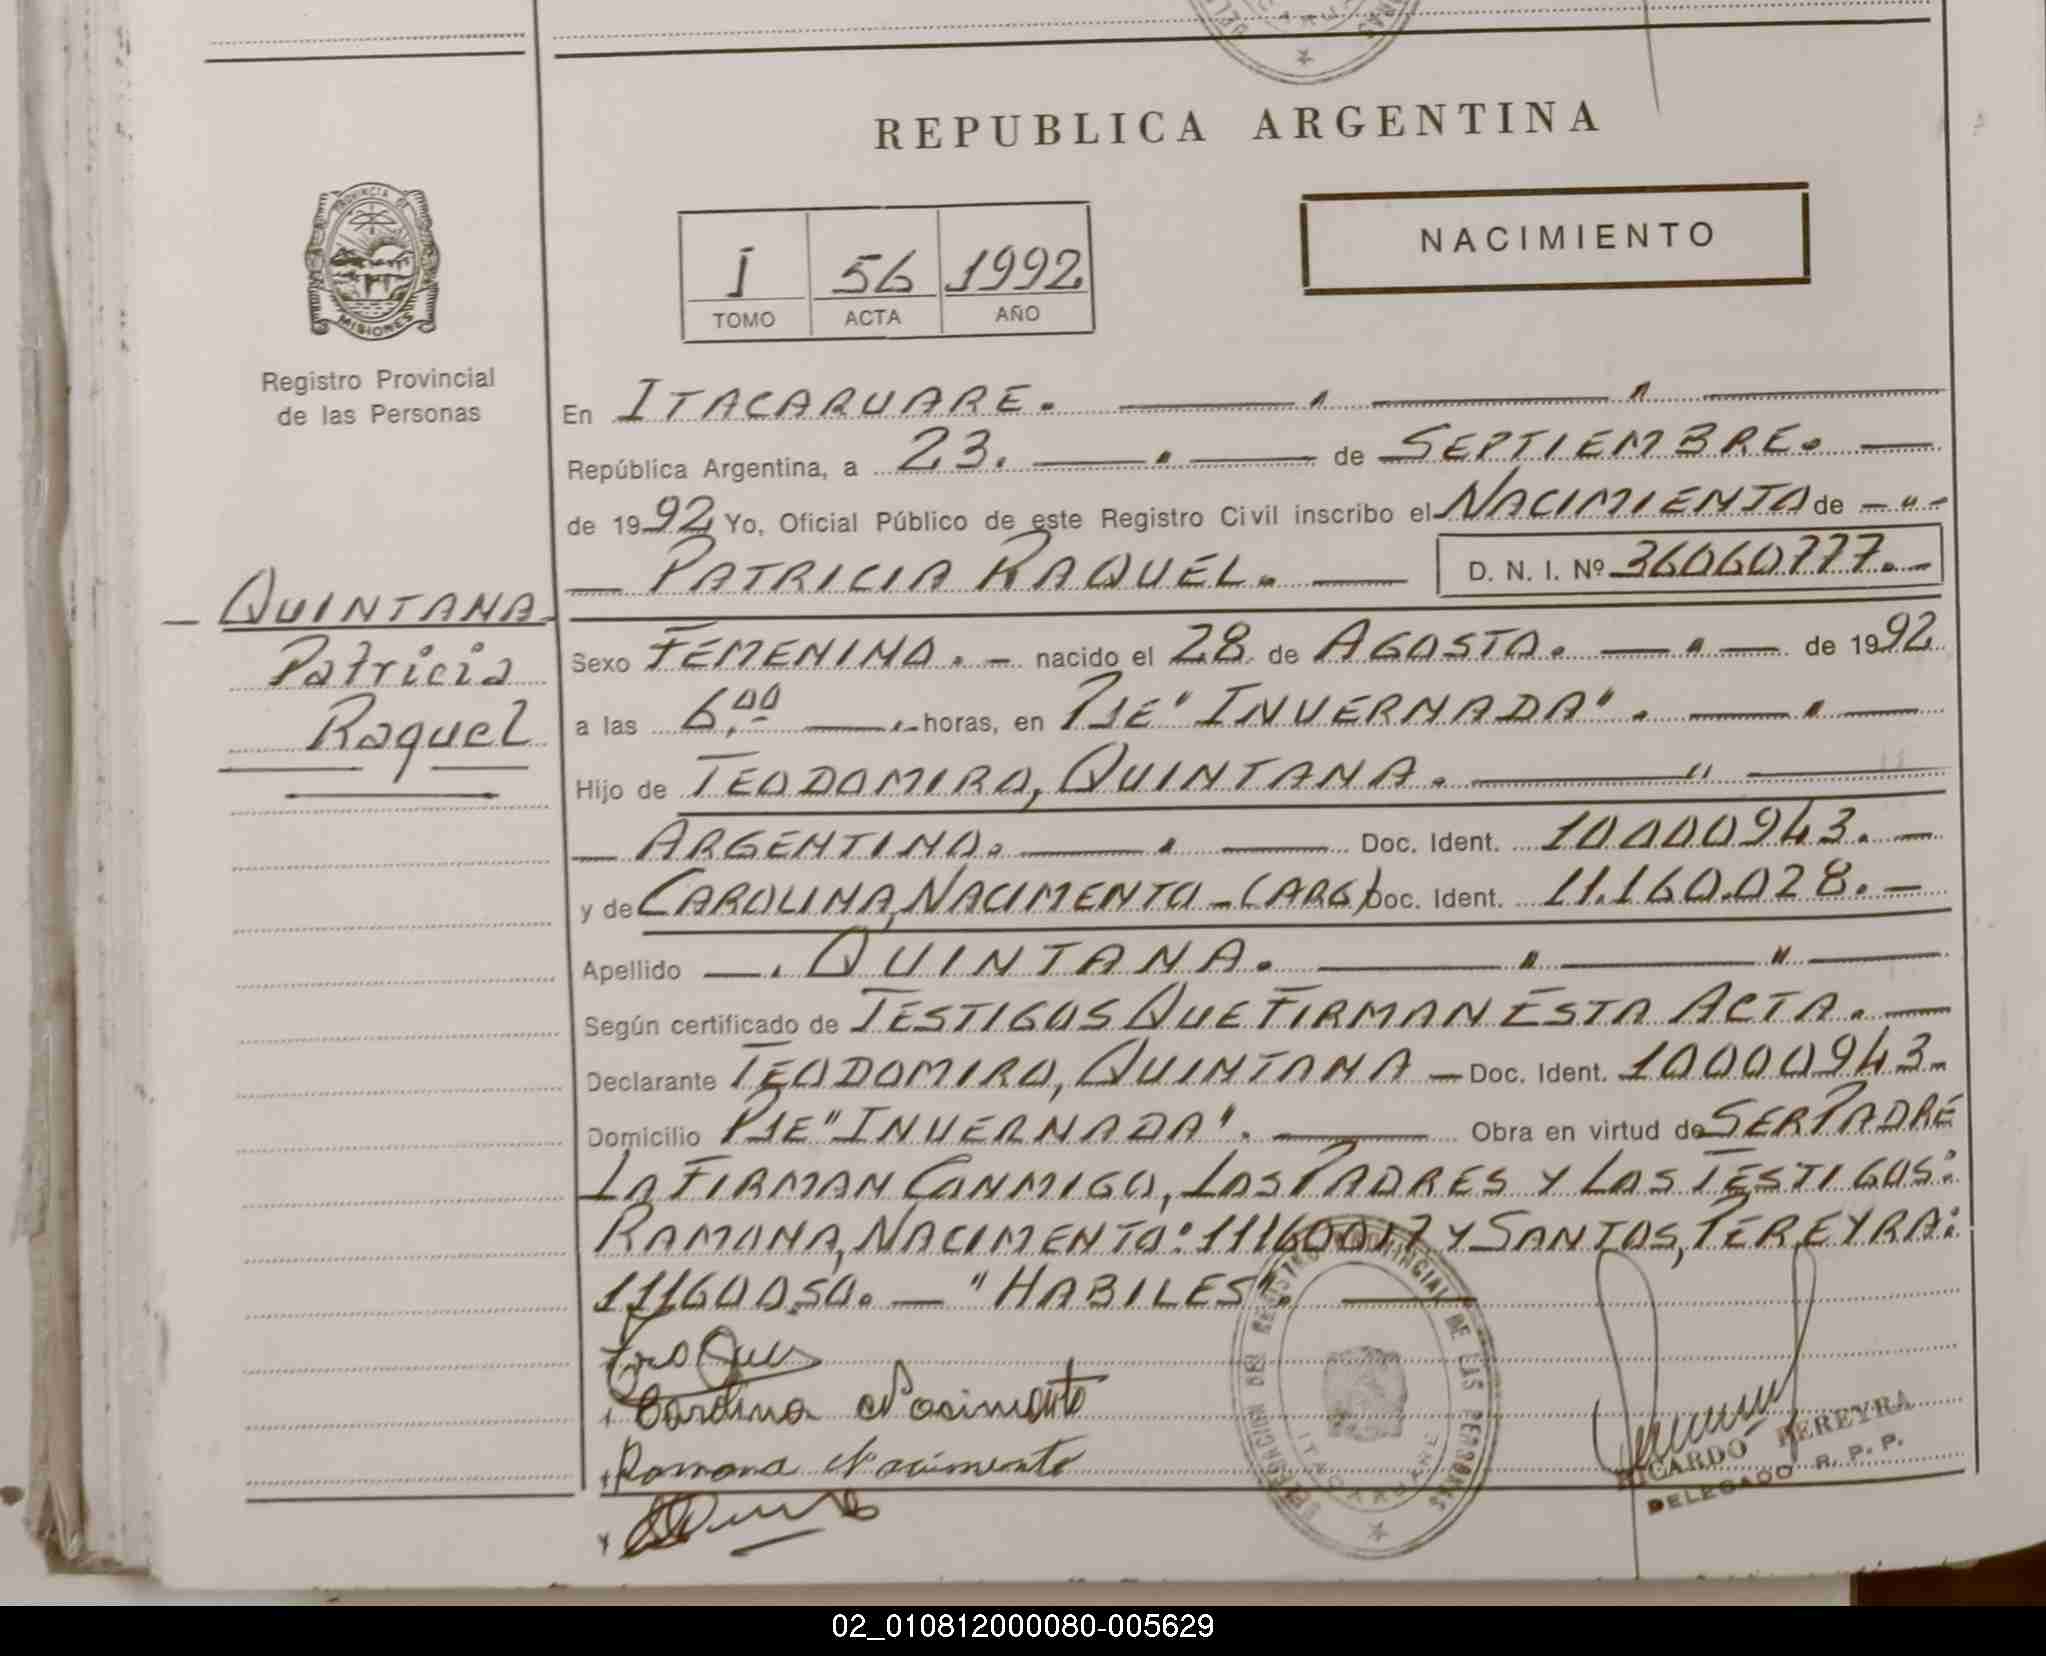 REPUBLICA ARGENTINA
NACIMIENTO
PROVINCIA DE
MISIONES
Registro Provincial
de las Personas
I 56 1992
TOMO ACTA AÑO
En ITACARUARE.
República Argentina, a 23. de SEPTIEMBRE.
de 1992 Yo, Oficial Público de este Registro Civil inscribo el NACIMIENTO de
PATRICIA RAQUEL. D. N. I. Nº 36060777.
QUINTANA
Patricia
Raquel
Sexo FEMENINO. nacido el 28 de AGOSTO. de 1992
a las 6,00 horas, en PJE "INVERNADA".
Hijo de TEODOMIRO, QUINTANA.
ARGENTINO. Doc. Ident. 10000943.
y de CAROLINA, NACIMENTO - (ARG) Doc. Ident. 11.160.028.
Apellido QUINTANA.
Según certificado de TESTIGOS QUE FIRMAN ESTA ACTA.
Declarante TEODOMIRO, QUINTANA Doc. Ident. 10000943.
Domicilio PJE "INVERNADA". Obra en virtud de SER PADRE
LA FIRMAN CONMIGO, LOS PADRES Y LOS TESTIGOS:
RAMONA, NACIMENTO: 11160017 Y SANTOS, PEREYRA:
11160050. "HABILES".
Carolina Nacimento
Ramona Nacimento
DEL REGISTRO PROVINCIAL DE LAS PERSONAS
ITACARUARE
RICARDO PEREYRA
DELEGADO R. P. P.
02_010812000080-005629